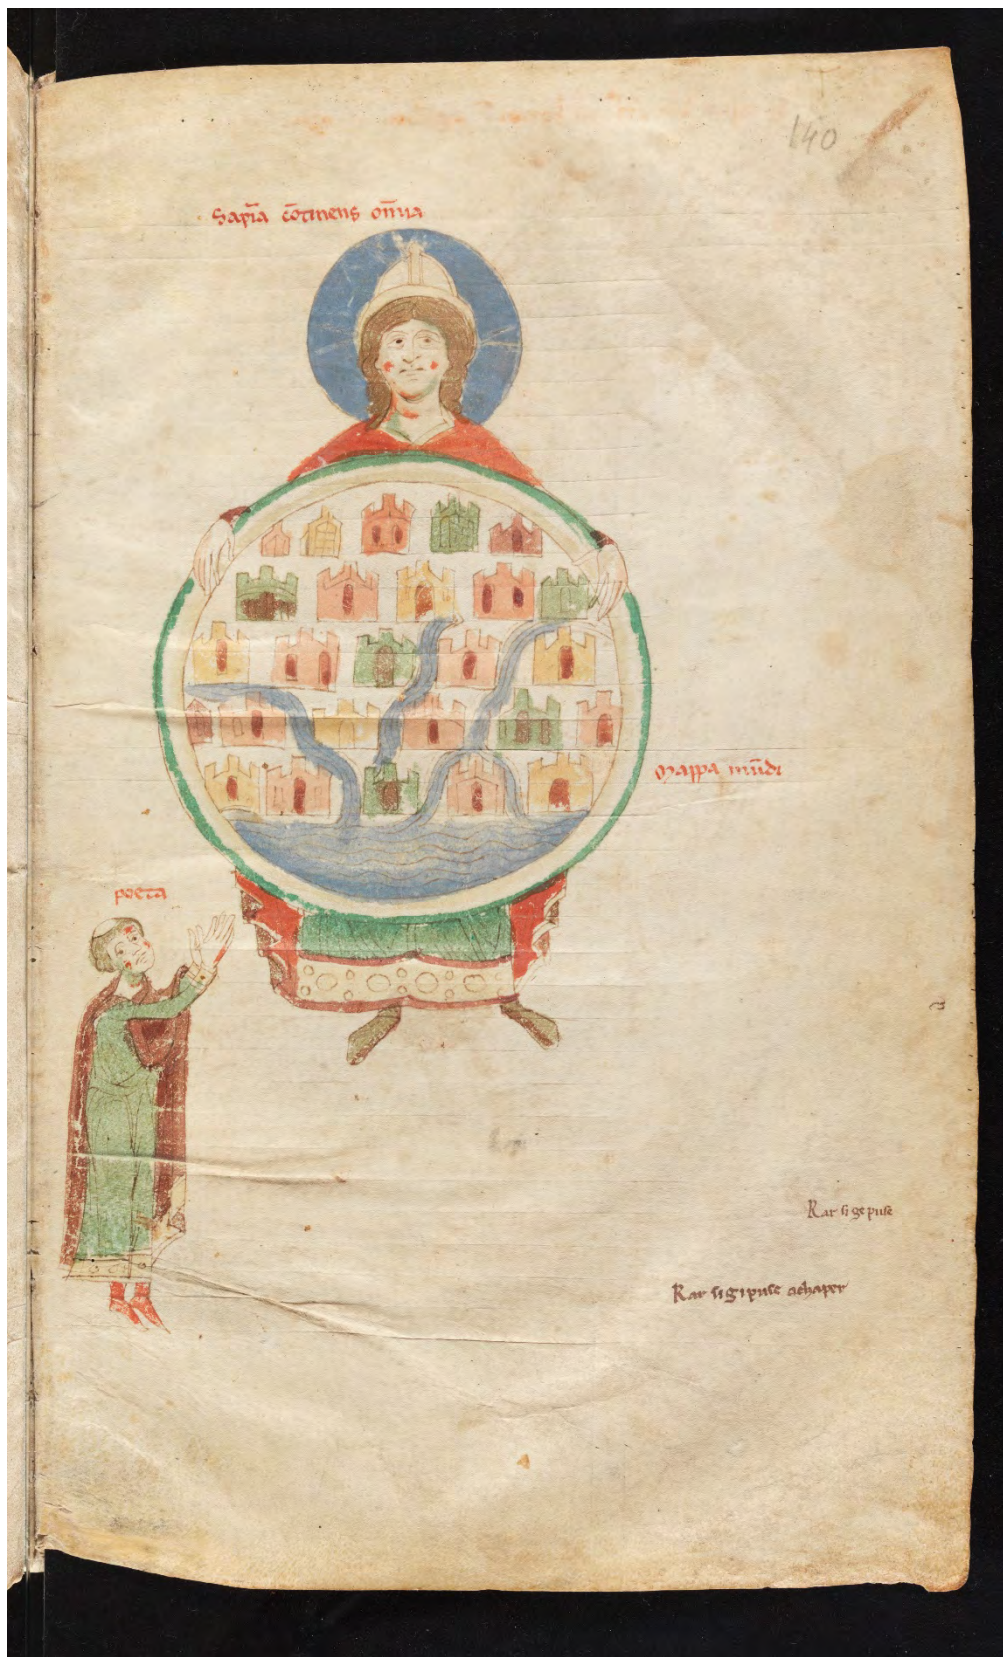 140
Sapīa cōtinens om̄ia
Mappa mūdi
poeta
Rar si ge puse
Rar si gi puse achaper